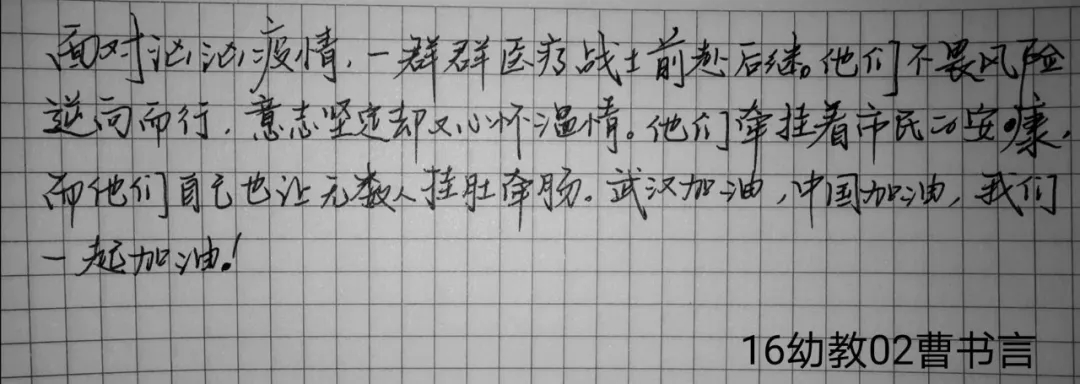 面对汹汹疫情，一群群医疗战士前赴后继。他们不畏风险
逆向而行，意志坚定却又心怀温情。他们牵挂着市民的安康，
而他们自己也让无数人挂肚牵肠。武汉加油，中国加油，我们
一起加油！
16幼教02曹书言